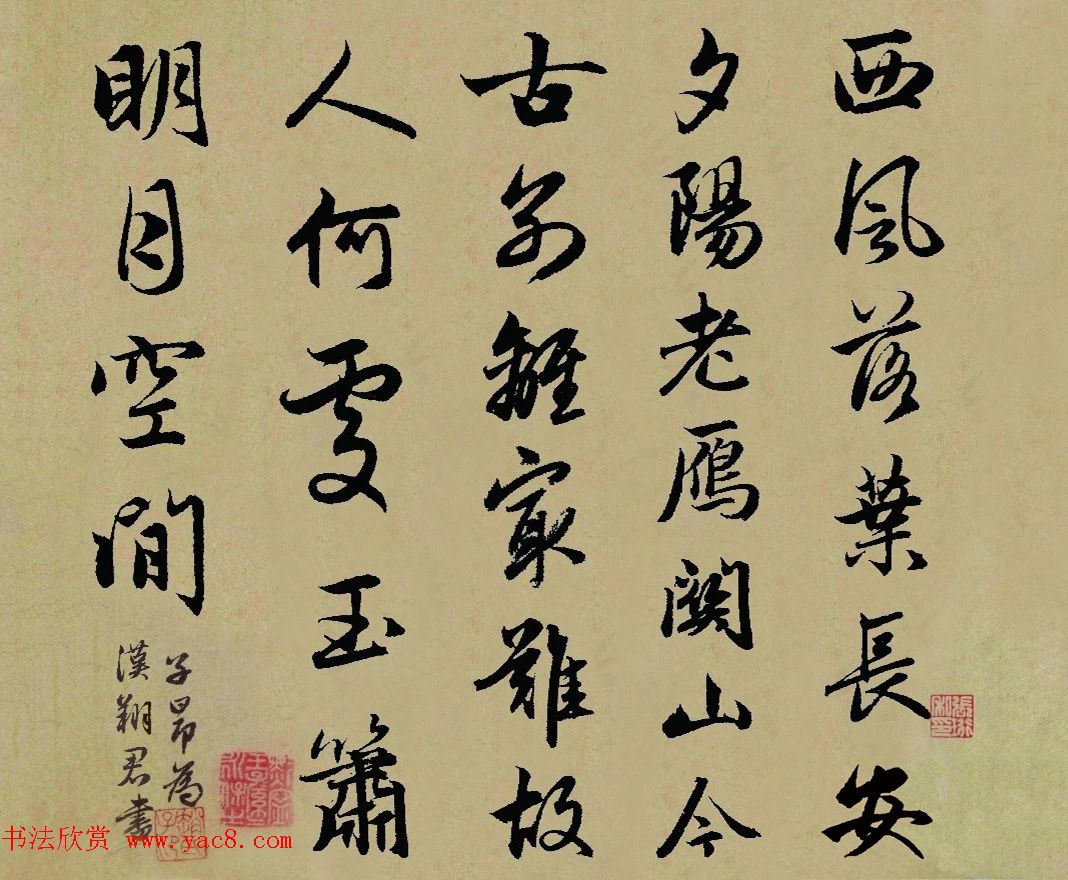 西風落葉長安
夕陽老雁關山今
古別離最難故
人何處玉簫
明月空間
子昂為
漢翔君書
书法欣赏 www.yac8.com